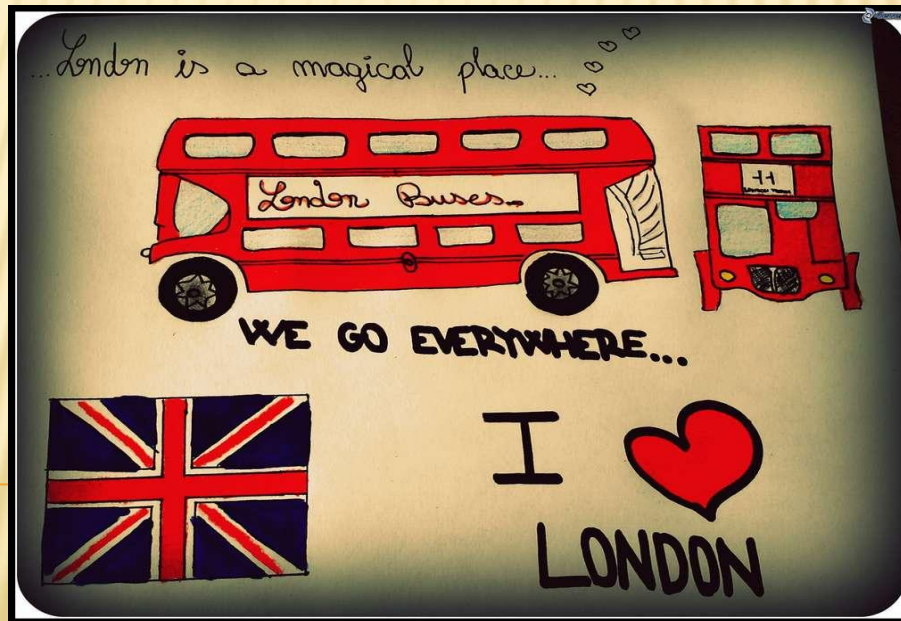 ...London is a magical place...
London Buses...
11
WE GO EVERYWHERE...
I
LONDON